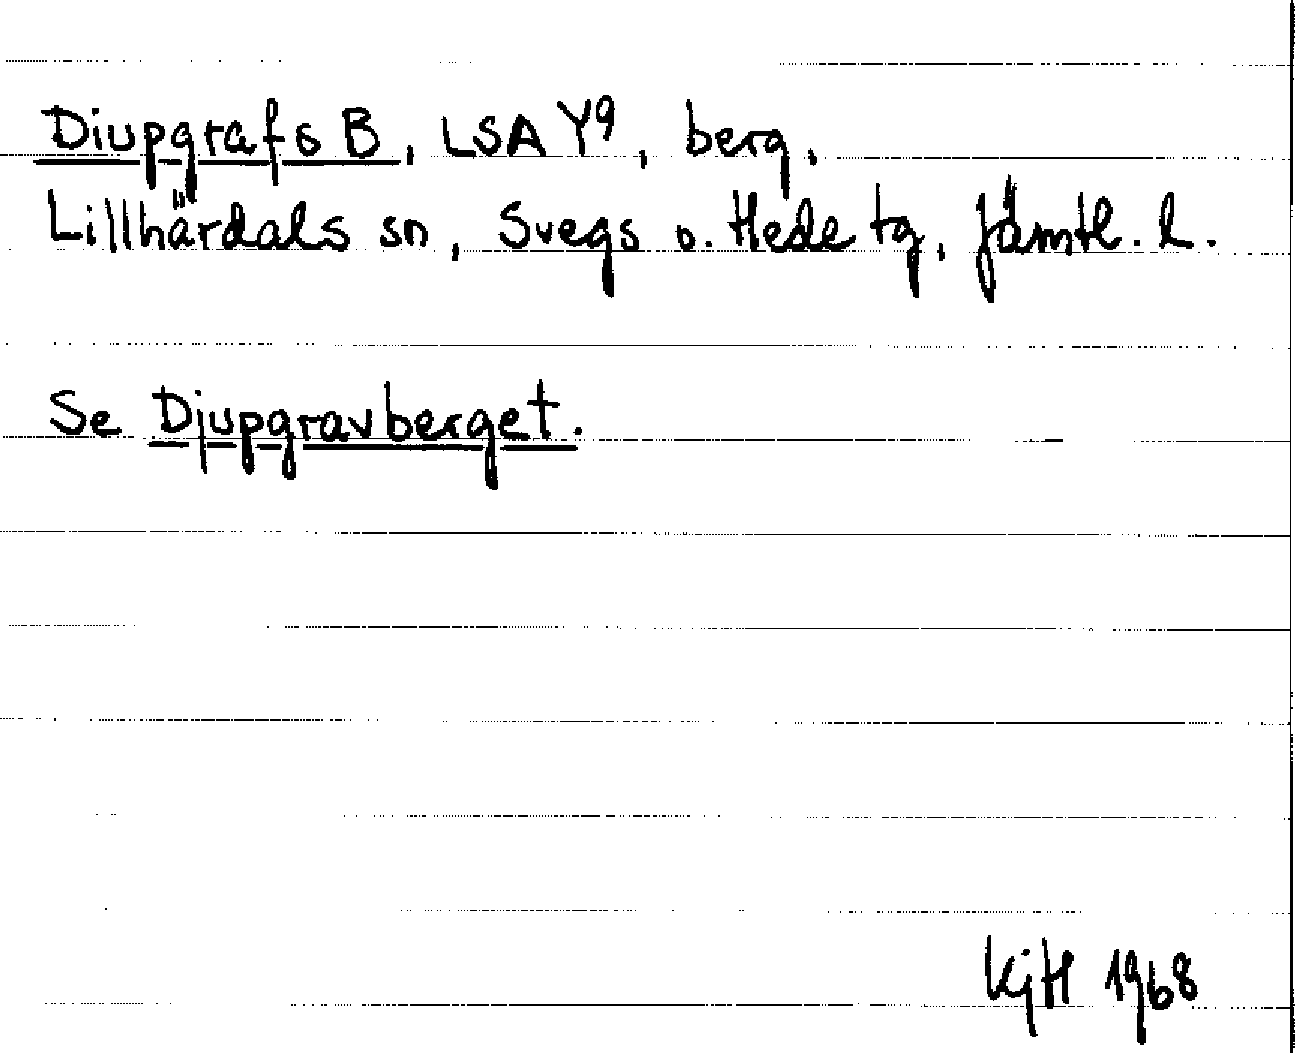 Diupgrafs B, LSA Y9, berg,
Lillhärdals sn, Svegs o. Hede tg, Jämtl. l.
Se Djupgravberget.
KjH 1968